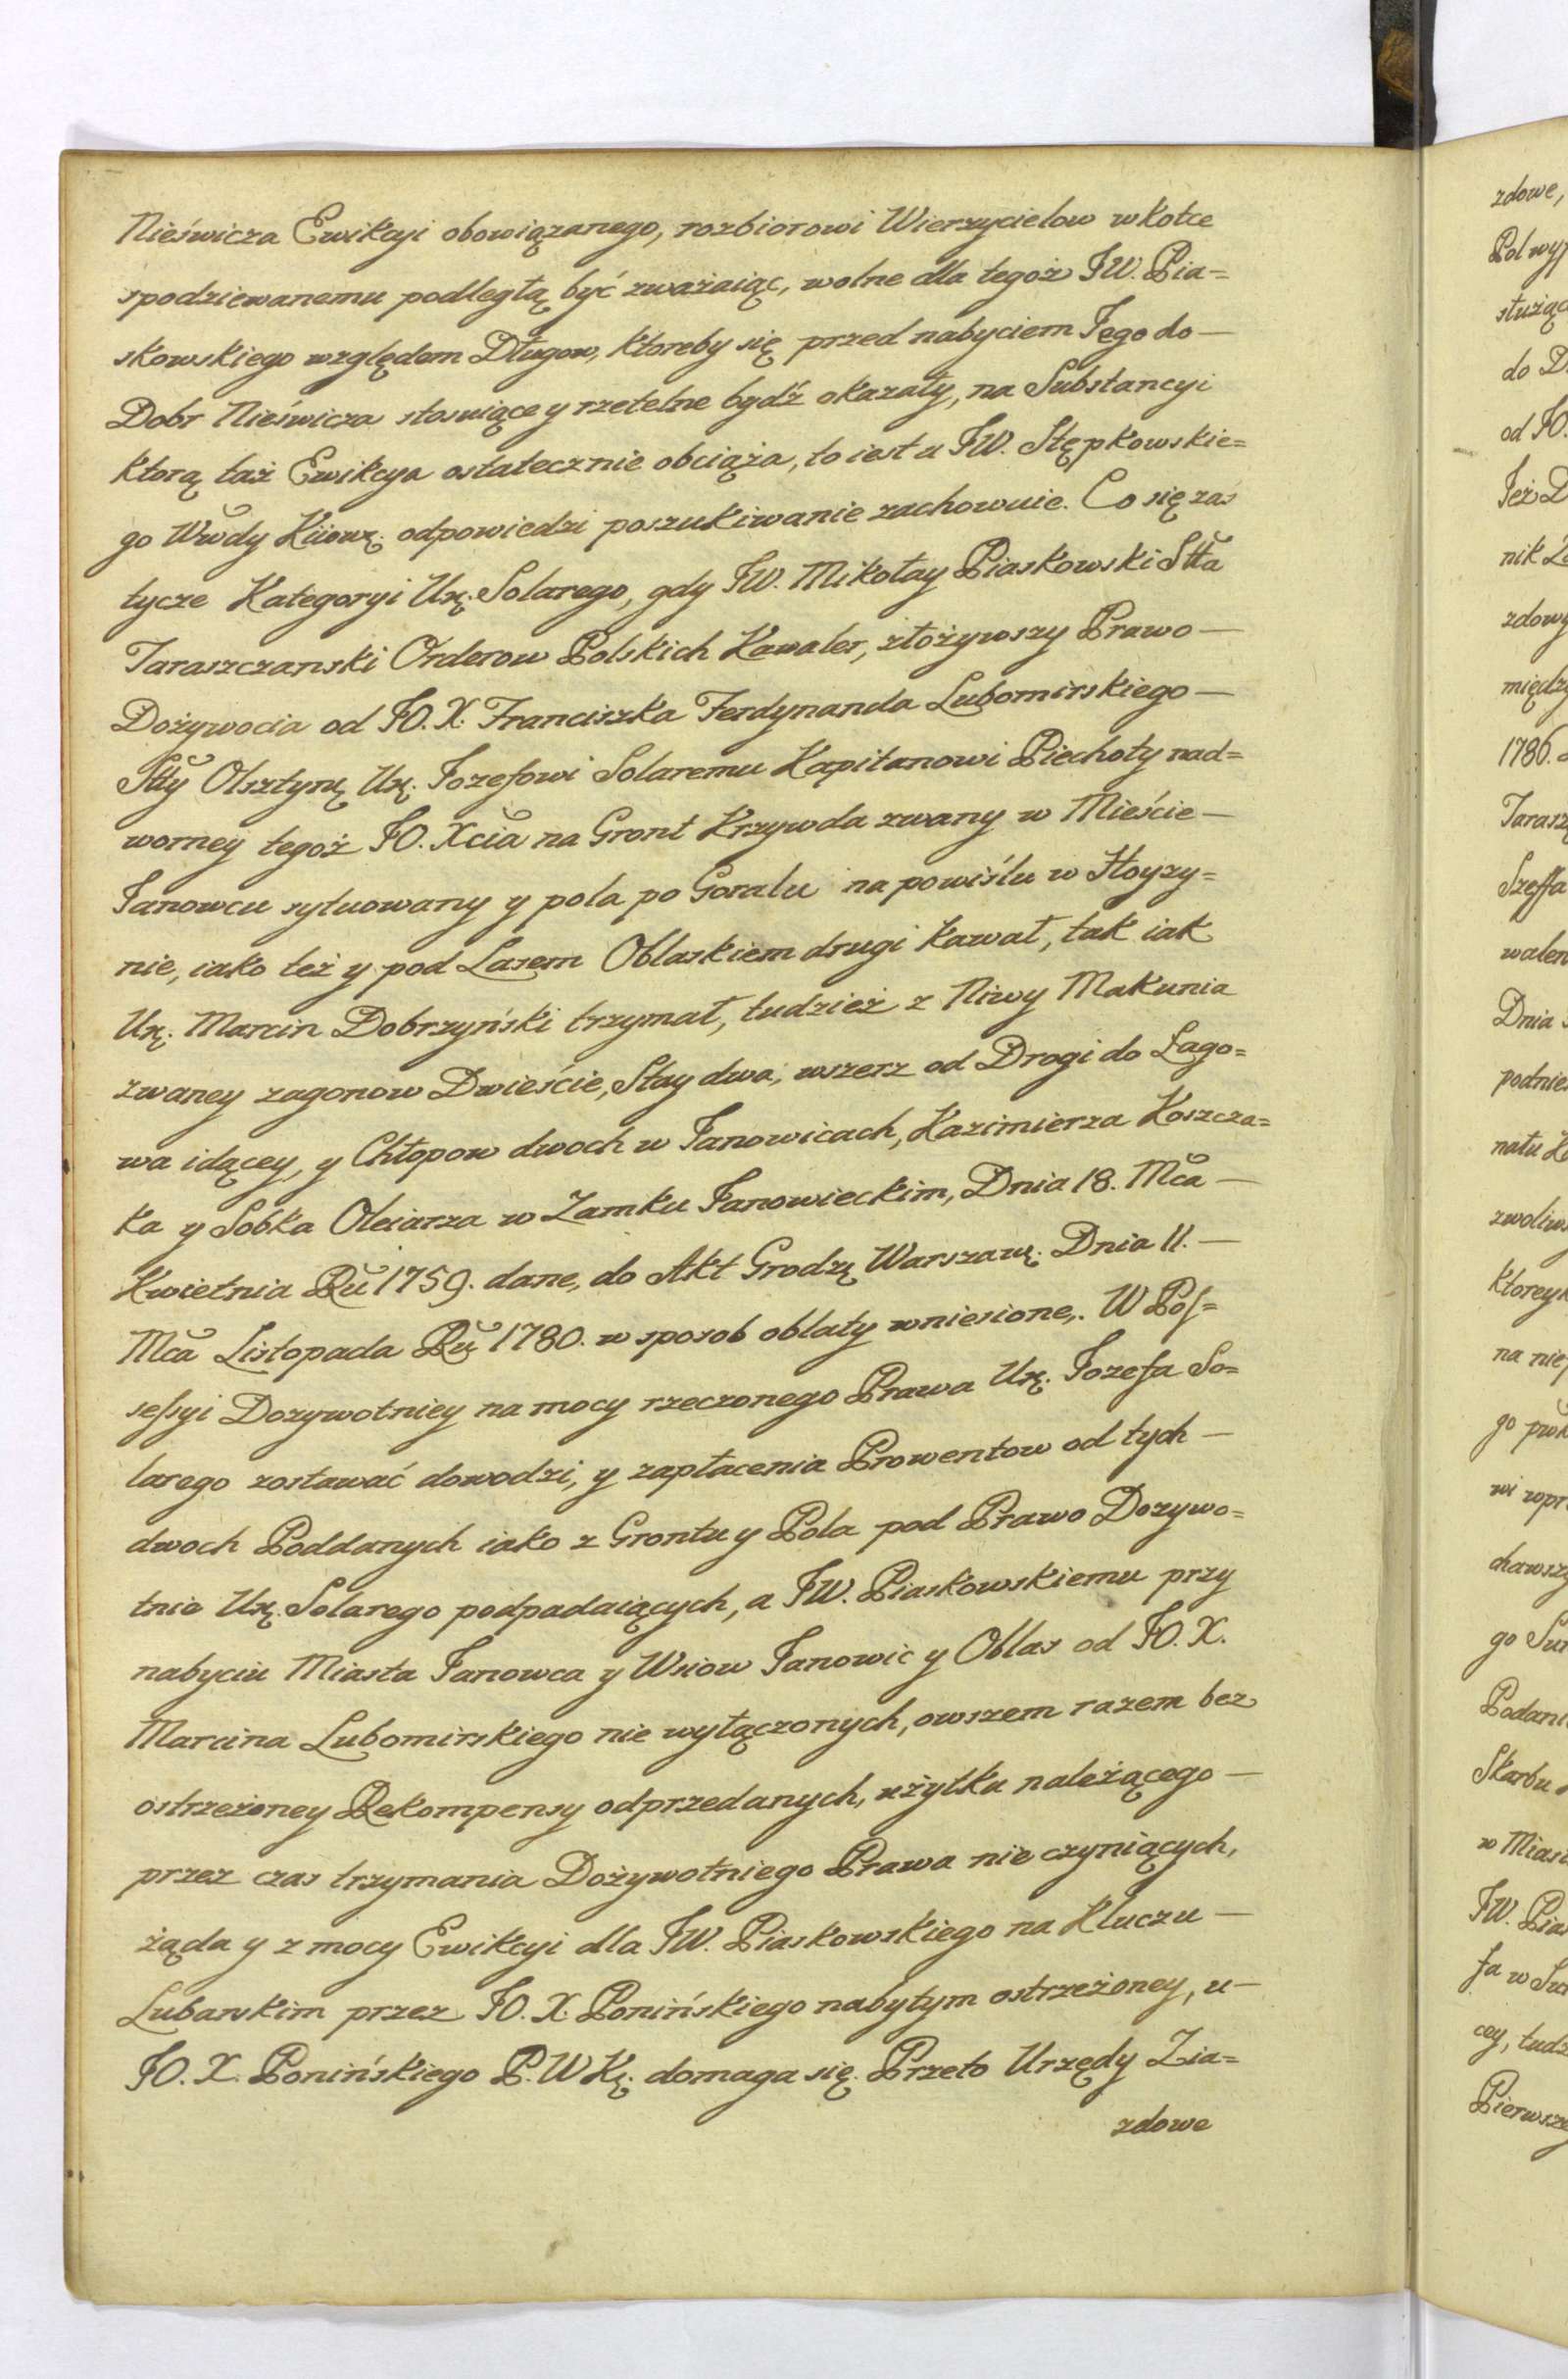 Nieświcza Ewikcyi obowiązanego, rozbiorowi Wierzycielow wkotce
spodziewanemu podległą być zważaiąc, wolne dla tegoż JW. Pia=
skowskiego względem Długow, ktoreby się przed nabyciem Jego do —
Dobr Nieświcza stosuiące y rzetelne bydź okazały, na Substancyi
ktorą taż Ewikcya ostatecznie obciąża, to iest u JW. Stępkowskie=
go Wwdy Kiiowę. odpowiedzi poszukiwanie zachowuie. Co się zaś
tycze Kategoryi Urę. Solarego, gdy JW. Mikołay Piaskowski Stta
Taraszczanski Orderow Polskich Kawaler, złożywszy Prawo —
Dożywocia od JO. X. Franciszka Ferdynanda Lubomirskiego —
Stty Olsztynę Urę. Jozefowi Solaremu Kapitanowi Piechoty nad=
worney tegoż JO. Xcia na Gront Krzywda zwany w Mieście —
Janowcu sytuowany y pola po Goralu na powiślu w
nie, iako też y pod Lasem Oblaskiem drugi kawał, tak iak
Urę. Marcin Dobrzyński trzymał, tudzież z Niwy Makunia
zwaney zagonow Dwieście, Stay dwa, wszerz od Drogi do Łago=
wa idącey, y Chłopow dwoch w Janowicach, Kazimierza Koszcza=
ka y Sobka Oleiarza w Zamku Janowieckim, Dnia 18. Mca —
Kwietnia Ru 1759. dane, do Akt Grodzę Warszawę. Dnia 11. —
Mca Listopada Ru 1780. w sposob oblaty wniesione,. W Pos=
sessyi Dozywotniey na mocy rzeczonego Prawa Urę. Jozefa So=
larego zostawać dowodzi, y zapłacenia Prowentow od tych —
dwoch Poddanych iako z Grontu y Pola pod Prawo Dozywo=
tnie Urę. Solarego podpadaiących, a JW. Piaskowskiemu przy
nabyciu Miasta Janowca y Wsiow Janowic y Oblas od JO. X.
Marcina Lubomirskiego nie wyłączonych, owszem razem bez
ostrzeżoney Rekompensy odprzedanych, użytku należącego —
przez czas trzymania Dożywotniego Prawa nie czyniących,
żąda y z mocy Ewikcyi dla JW. Piaskowskiego na Kluczu —
Lubarskim przez JO. X. Ponińskiego nabytym ostrzeżoney, u —
JO. X. Ponińskiego P. W Kę. domaga się. Przeto Urzędy Zia=
zdowe
zdowe,
Pol wyj
służąc
do D
od JO.
Jeż D
nik
zdowy
między
1786.
Tarasz
Szeffa
walen
Dnia
podnie
natu
zwoliw
ktorey
na nie
go
wi
chawszy
go
Podani
Skarbu
w Miast
JW. Pia
fa w
cey, tudz
Pierwsze